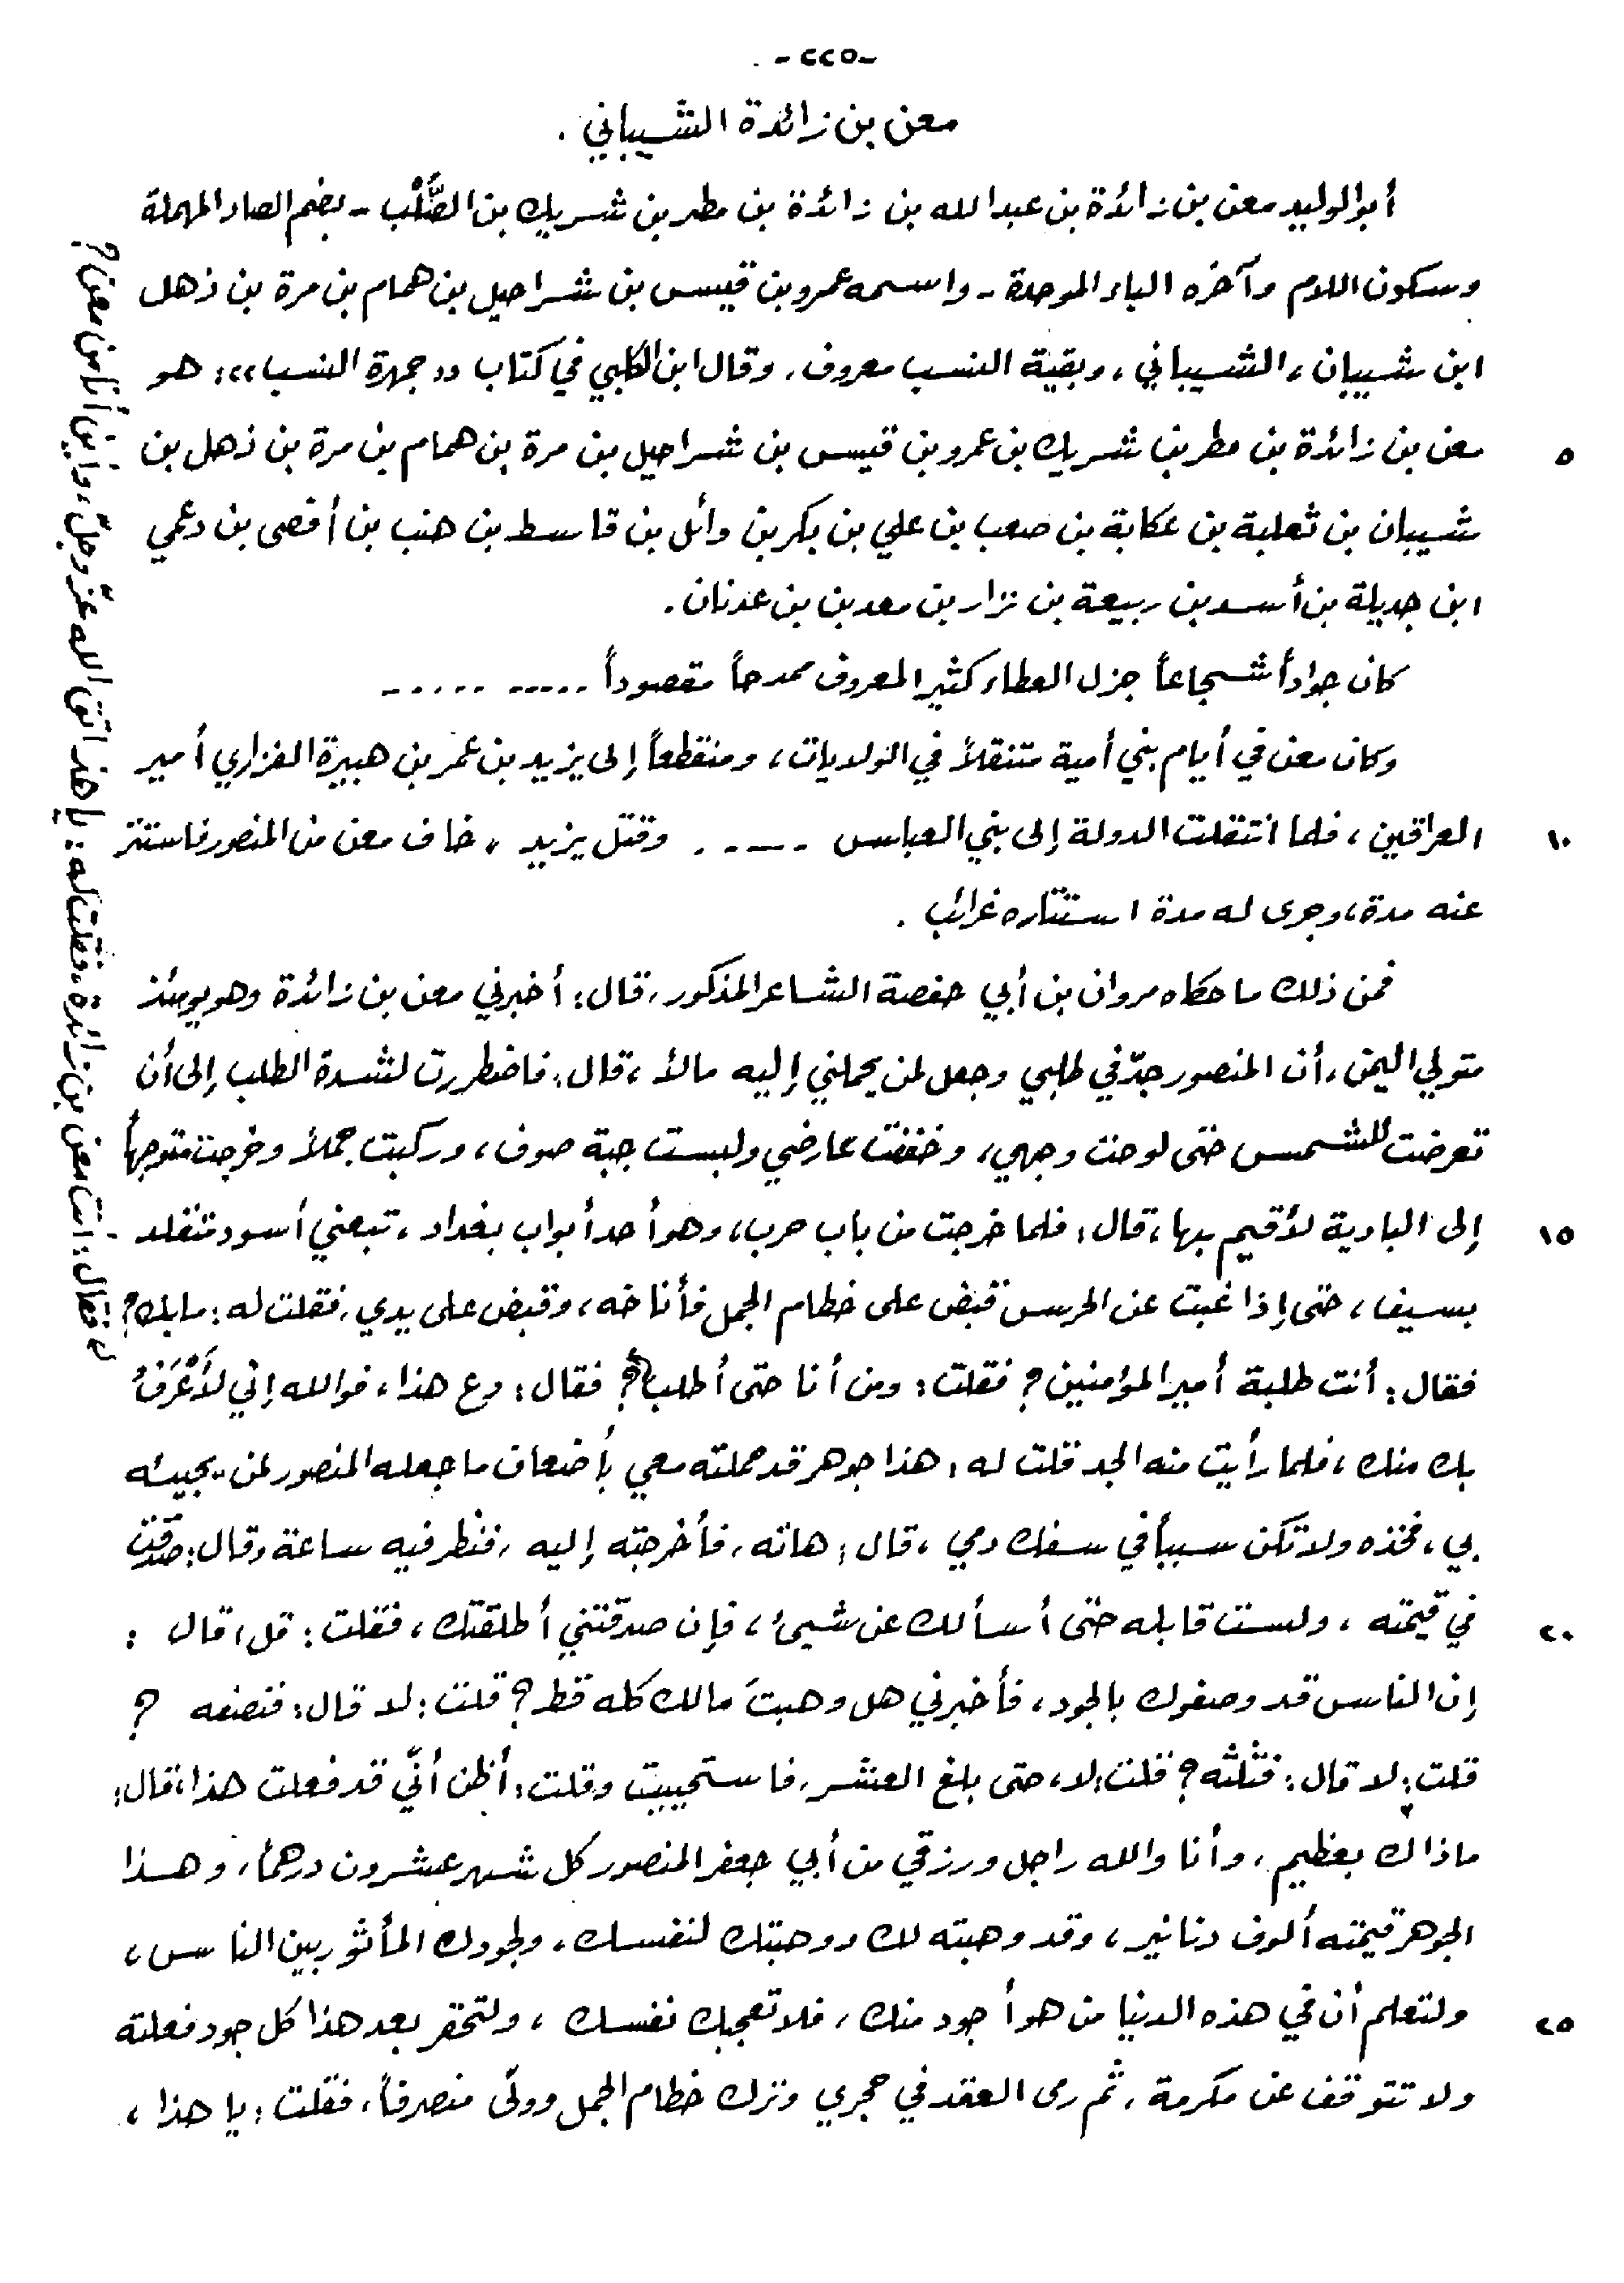 -٢٢٥-
معن بن زائدة الشيباني .
أبو الوليد معن بن زائدة بن عبد الله بن زائدة بن مطر بن شريك بن الصُّلْب - بضم الصاد المهملة
وسكون اللام وآخره الباء الموحدة - واسمه عمرو بن قيس بن شراحيل بن همام بن مرة بن ذهل
ابن شيبان ، الشيباني ، وبقية النسب معروف ، وقال ابن الكلبي في كتاب ,, جمهرة النسب ،، : هو
معن بن زائدة بن مطر بن شريك بن عمرو بن قيس بن شراحيل بن مرة بن همام بن مرة بن ذهل بن
٥
شيبان بن ثعلبة بن عكابة بن صعب بن علي بن بكر بن وائل بن قاسط بن هنب بن أفصى بن دعمي
ابن جديلة بن أسد بن ربيعة بن نزار بن معد بن بن عدنان .
كان جواداً شجاعاً جزل العطاء كثير المعروف ممدحاً مقصوداً ..... ...... -
وكان معن في أيام بني أمية متنقلاً في الولايات ، ومنقطعاً إلى يزيد بن عمر بن هبيرة الفزاري أمير
العراقين ، فلما انتقلت الدولة إلى بني العباس ..... وقتل يزيد ، خاف معن من المنصور فاستتر
١٠
عنه مدة ، وجرى له مدة استتاره غرائب .
فمن ذلك ما حكاه مروان بن أبي حفصة الشاعر المذكور ، قال : أخبرني معن بن زائدة وهو يومئذ
متولي اليمن ، أن المنصور جدّ في طلبي وجعل لمن يحملني إليه مالاً ، قال : فاضطررت لشدة الطلب إلى أن
تعرضت للشمس حتى لوحت وجهي ، وخففت عارضي ولبست جبة صوف ، وركبت جملاً وخرجت متوجهاً
إلى البادية لأقيم بها ، قال : فلما خرجت من باب حرب ، وهو أحد أبواب بغداد ، تبعني أسود متقلد
١٥
بسيف ، حتى إذا غبت عن الحرس قبض على خطام الجمل فأناخه ، وقبض على يدي ، فقلت له : ما بك ؟
فقال : أنت طلبة أمير المؤمنين ؟ فقلت : ومن أنا حتى أطلب ؟ فقال : دع هذا ، فوالله إني لأَعْرَفُ
بك منك ، فلما رأيت منه الجد قلت له : هذا جوهر قد حملته معي بأضعاف ما جعله المنصور لمن يجيئه
بي ، فخذه ولا تكن سبباً في سفك دمي ، قال : هاته ، فأخرجته إليه ، فنظر فيه ساعة وقال : صدقت
في قيمته ، ولست قابله حتى أسألك عن شيئ ، فإن صدقتني أطلقتك ، فقلت : قل ، قال :
٢٠
إن الناس قد وصفوك بالجود ، فأخبرني هل وهبتَ مالك كله قط ؟ قلت : لا قال : فنصفه ؟
قلت : لا قال : فثلثه ؟ قلت : لا ، حتى بلغ العشر ، فاستحييت وقلت : أظن أنّي قد فعلت هذا ، قال :
ما ذاك بعظيم ، وأنا والله راجل ورزقي من أبي جعفر المنصور كل شهر عشرون درهماً ، وهذا
الجوهر قيمته ألوف دنانير ، وقد وهبته لك ووهبتك لنفسك ، ولجودك المأثور بين الناس ،
ولتعلم أن في هذه الدنيا من هو أجود منك ، فلا تعجبك نفسك ، ولتحقر بعد هذا كل جود فعلته
٢٥
ولا تتوقف عن مكرمة ، ثم رمى العقد في حجري وترك خطام الجمل وولّى منصرفاً ، فقلت : يا هذا ،
فقال : أنت معن بن زائدة ، فقلت له : يا هذا اتق الله عزّ وجلّ ، وأين أنا من معن ؟